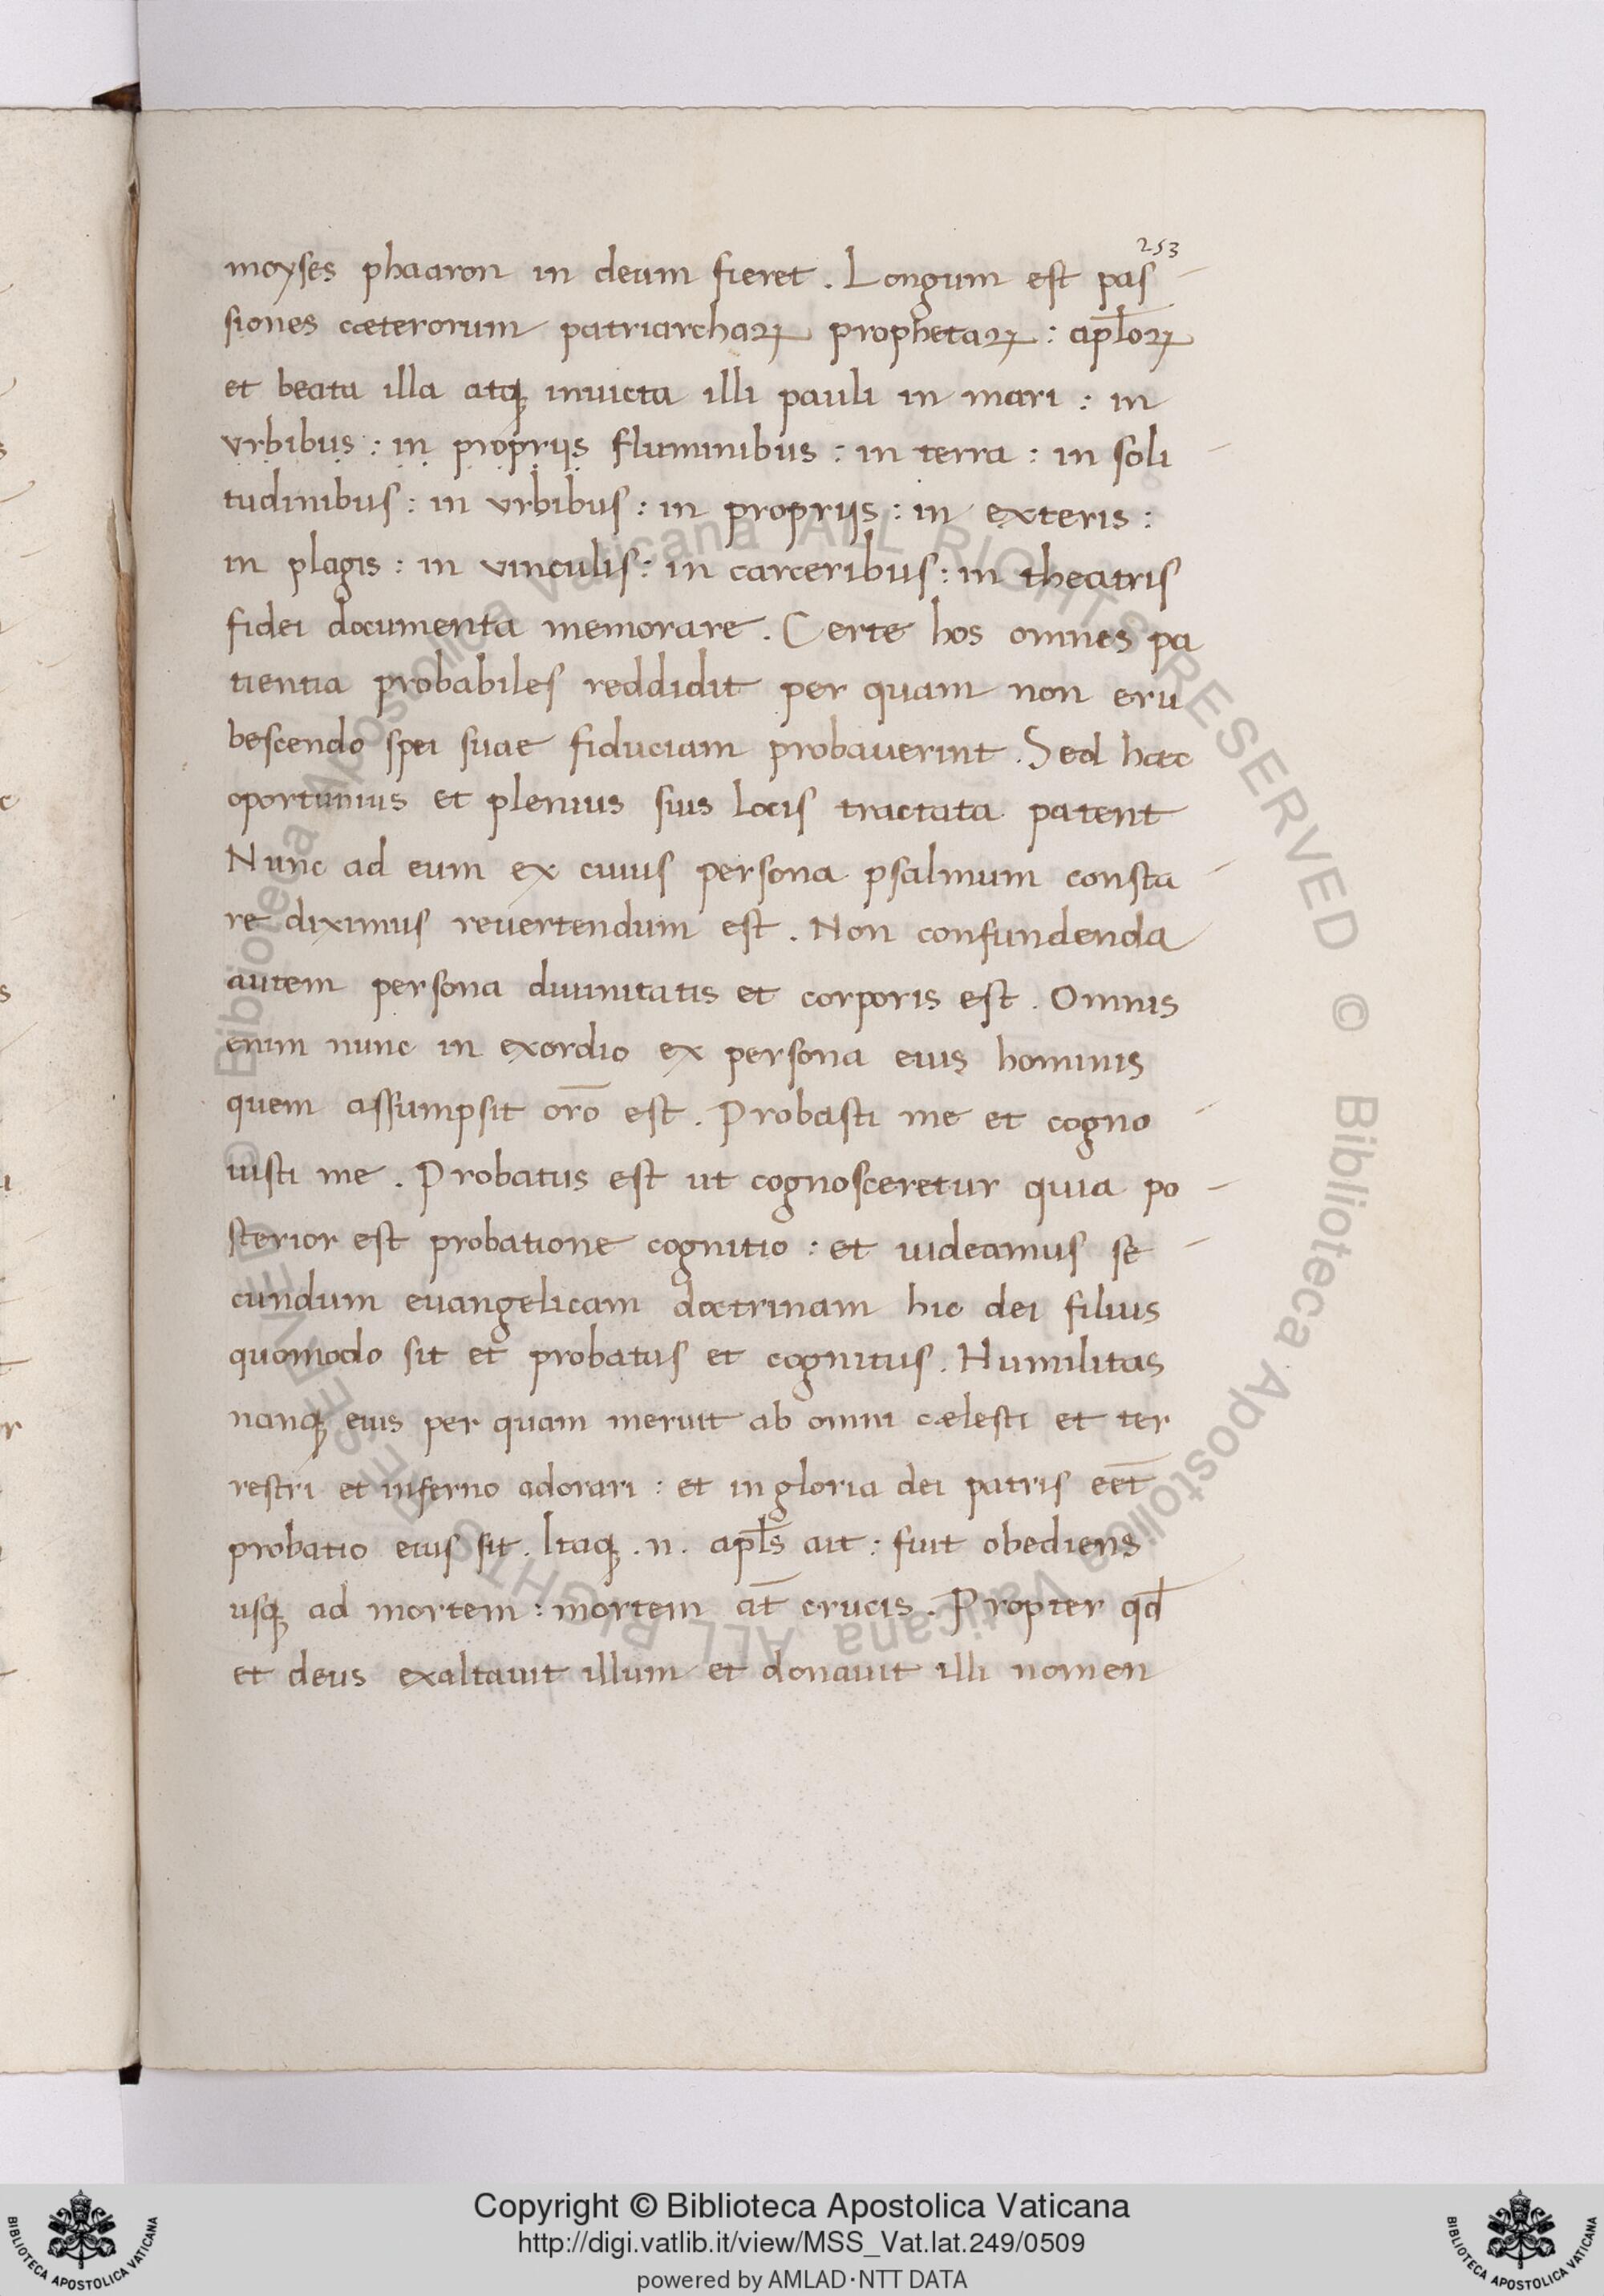 253
moyses pharaon in deum fieret . Longum est pas
siones cæterorum patriarchaꝝ prophetaꝝ : apl̄oꝝ
et beata illa atqꝫ inuicta illi pauli in mari : in
vrbibus : in proprijs fluminibus : in terra : in soli
tudinibus : in vrbibus : in proprijs : in exteris :
in plagis : in vinculis : in carceribus : in theatris
fidei documenta memorare . Certe hos omnes pa
tientia probabiles reddidit per quam non eru
bescendo spei suae fiduciam probauerint . Sed haec
oportunius et plenius suis locis tractata patent
Nunc ad eum ex cuius persona psalmum consta
re diximus reuertendum est . Non confundenda
autem persona diuinitatis et corporis est . Omnis
enim nunc in exordio ex persona eius hominis
quem assumpsit or̄o est . Probasti me et cogno
uisti me . Probatus est ut cognosceretur quia po
sterior est probatione cognitio : et uideamus se
cundum euangelicam doctrinam hic dei filius
quomodo sit et probatus et cognitus . Humilitas
nanqꝫ eius per quam meruit ab omni cælesti et ter
restri et inferno adorari : et in gloria dei patris eēt
probatio eius sit . Itaqꝫ .n. apl̄s ait : fuit obediens
usqꝫ ad mortem : mortem at̄ crucis . Propter qd̄
et deus exaltauit illum et donauit illi nomen
© Biblioteca Apostolica Vaticana ALL RIGHTS RESERVED
© Biblioteca Apostolica Vaticana ALL RIGHTS RESERVED
Copyright © Biblioteca Apostolica Vaticana
http://digi.vatlib.it/view/MSS_Vat.lat.249/0509
powered by AMLAD·NTT DATA
BIBLIOTECA APOSTOLICA VATICANA
BIBLIOTECA APOSTOLICA VATICANA